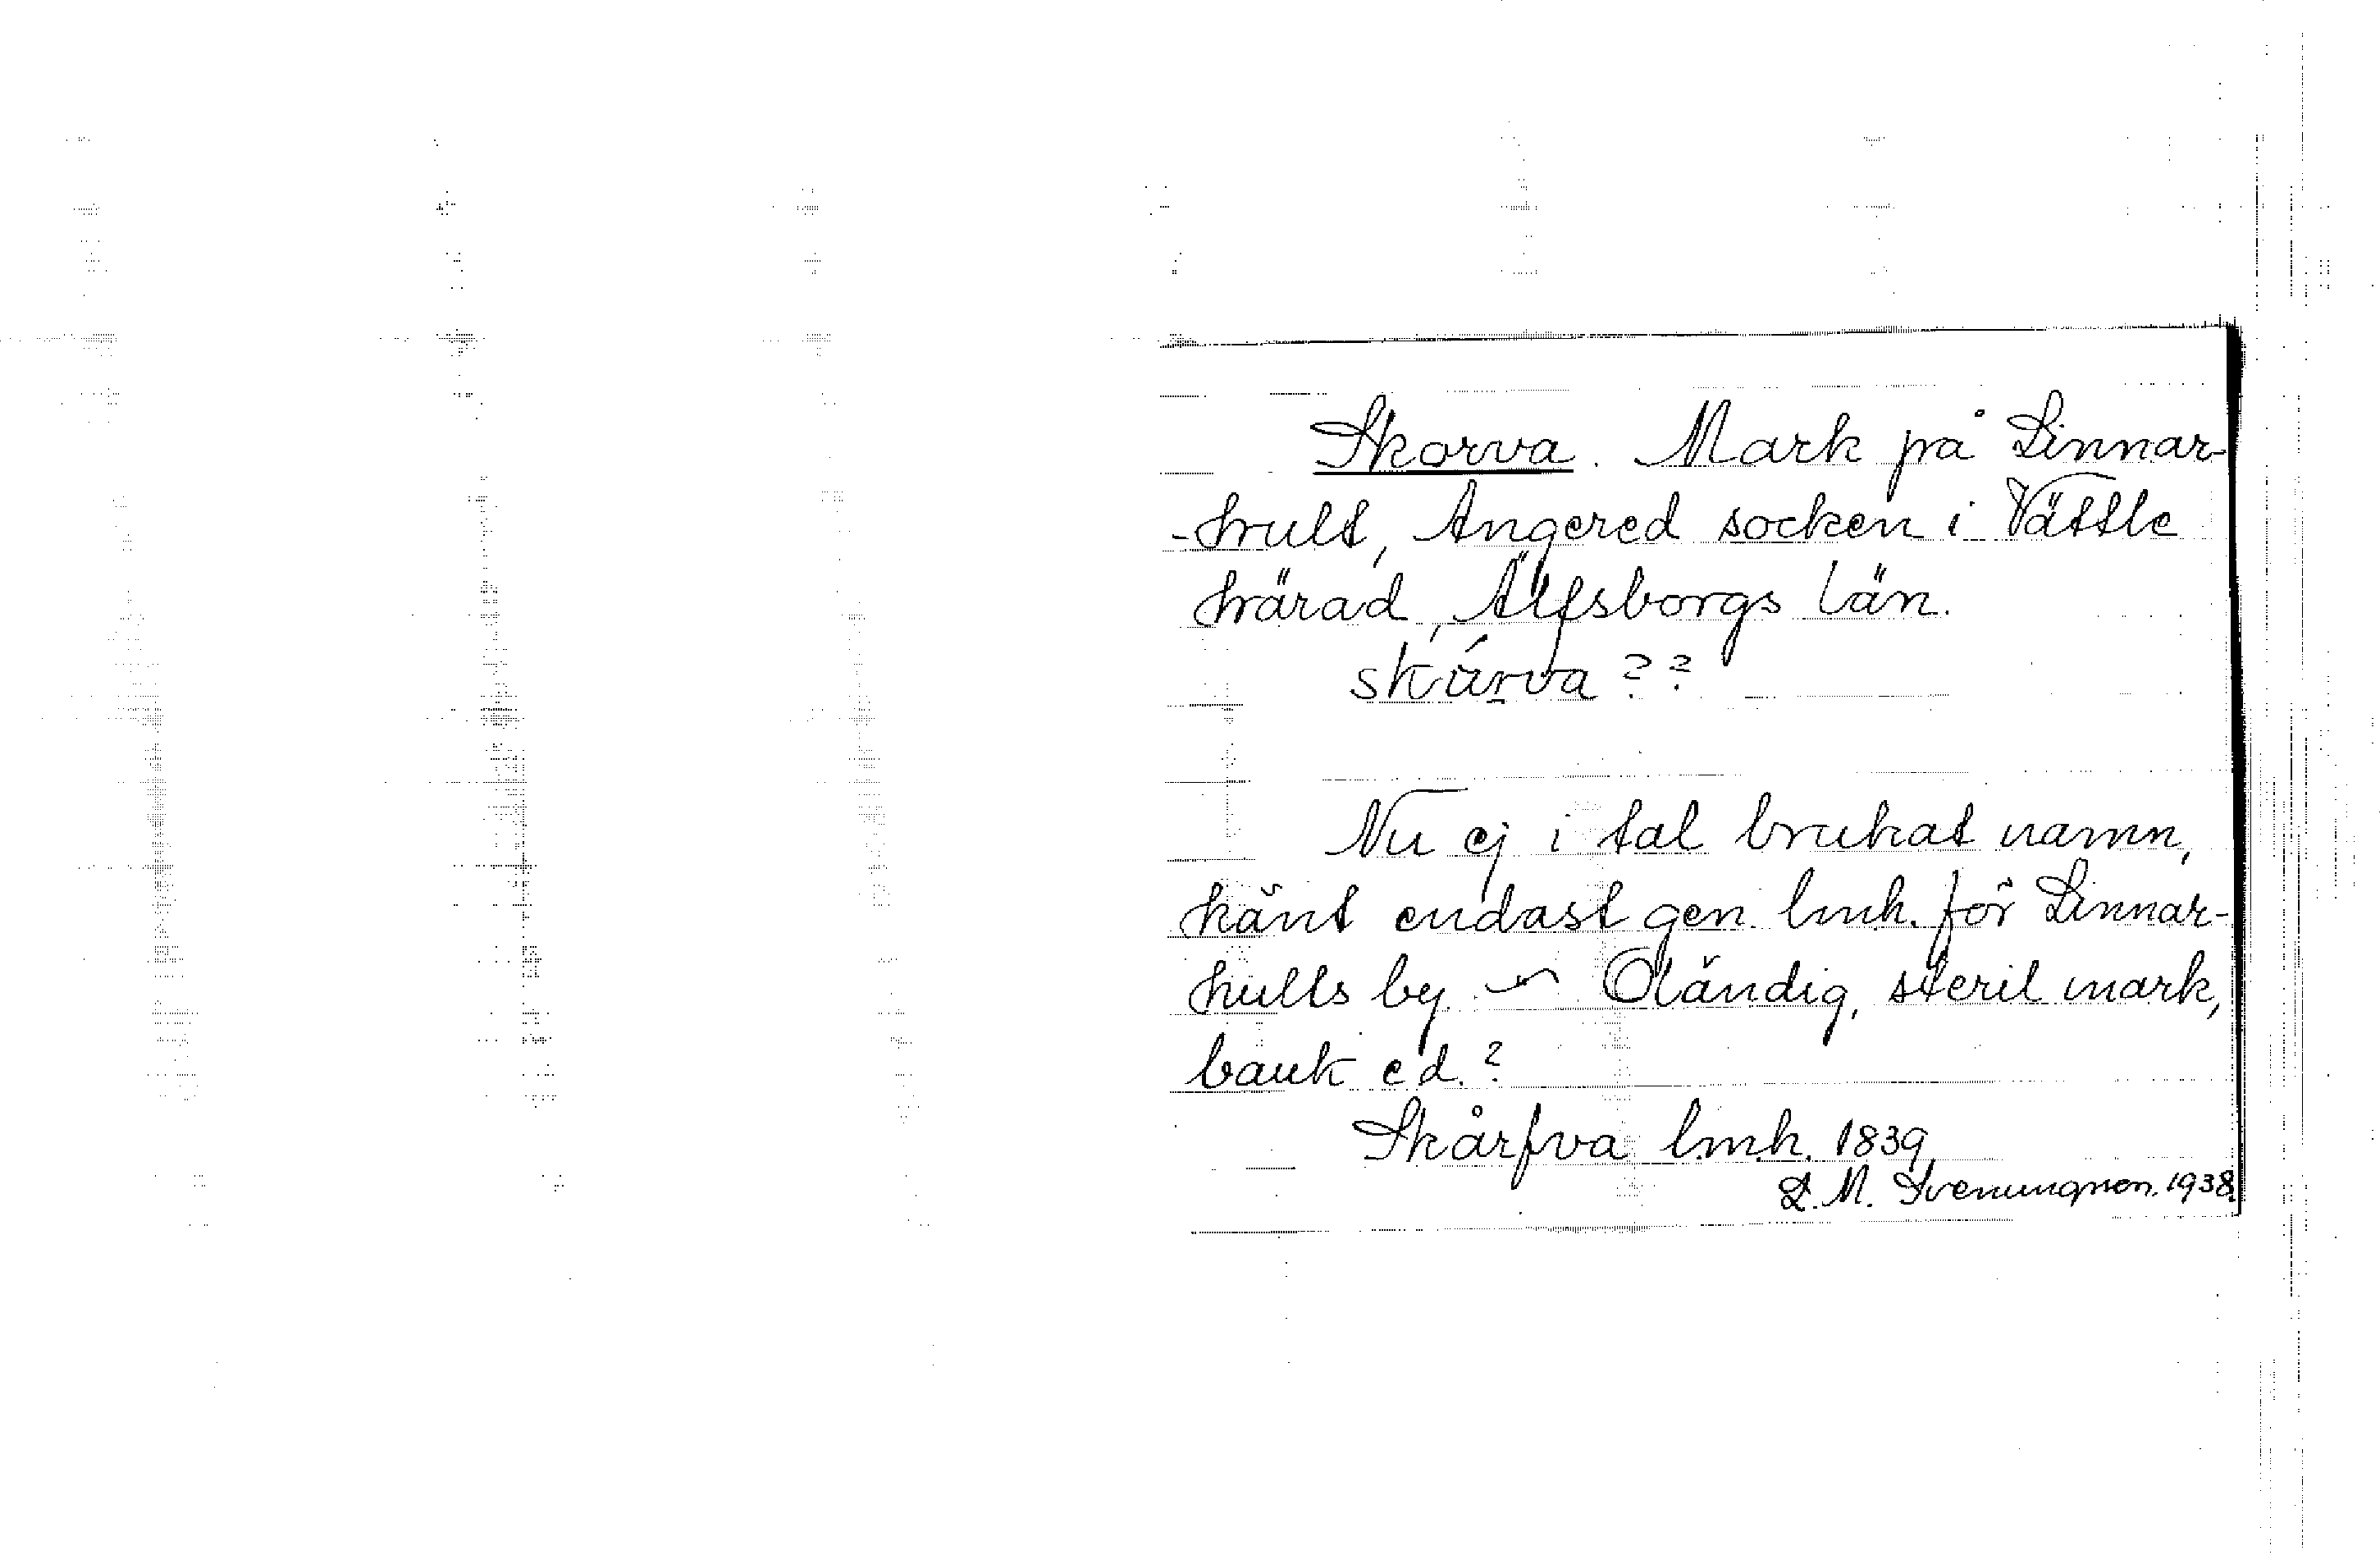 Skorva. Mark på Linnar-
-hult, Angered socken i Vättle
härad, Älfsborgs län.
skårva??
Nu ej i tal brukat namn,
känt endast gen lmh. för Linnar-
hults by. ~ Oländig, steril mark,
bank ed.?
Skårfva lmh. 1839
L. M. Svenungsson. 1938.